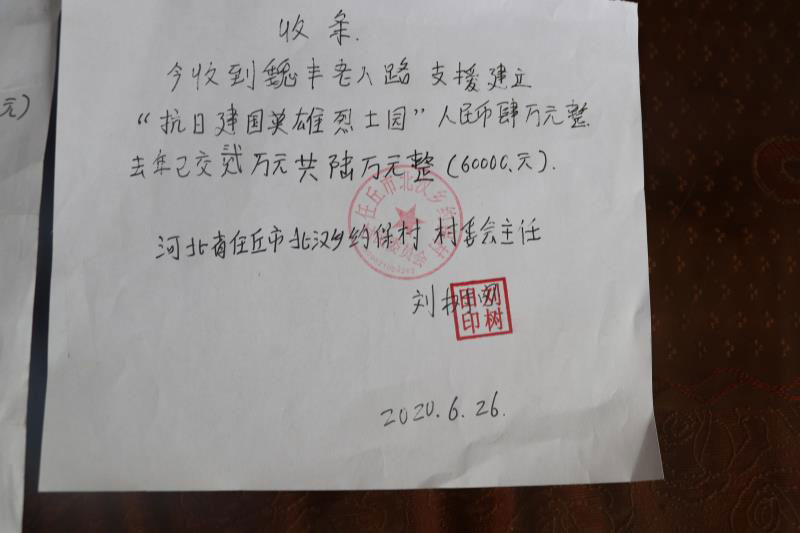 收条.
今收到魏丰老人路 支援建立
“抗日建国英雄烈士园”人民币肆万元整.
去年已交贰万元共陆万元整(60000.元).
任丘市北汉乡约
河北省任丘市北汉乡约保村 村委会主任
刘树
印刘
印树
2020.6.26.
元)